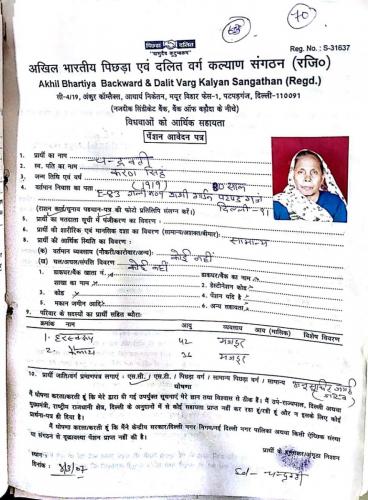 70
पिछड़ा दलित
"वसुधैव कुटुम्बकम्"
Reg. No. : S-31637
अखिल भारतीय पिछड़ा एवं दलित वर्ग कल्याण संगठन (रजि०)
Akhil Bhartiya Backward & Dalit Varg Kalyan Sangathan (Regd.)
सी-4/19, अंकुर कॉम्प्लैक्स, आचार्य निकेतन, मयूर विहार फेस-1, पटपड़गंज, दिल्ली-110091
(नजदीक सिंडीकेट बैंक, बैंक ऑफ बड़ौदा के नीचे)
विधवाओं को आर्थिक सहायता
पेंशन आवेदन पत्र
1. प्रार्थी का नाम
2. स्व. पति का नाम सिंह
3. जन्म तिथि एवं वर्ष (1919) 80 साल
4. वर्तमान निवास का पता E-83 गली दिल्ली-91
(राशन कार्ड/चुनाव पहचान-पत्र की फोटो प्रतिलिपि संलग्न करें।)
5. प्रार्थी का मतदाता सूची में पंजीकरण का विवरण :
6. प्रार्थी की शारीरिक एवं मानसिक दशा का विवरण (सामान्य/अशक्त/बीमार) : सामान्य
8. प्रार्थी की आर्थिक स्थिति का विवरण :
(क) वर्तमान व्यवसाय (नौकरी/कारोबार/अन्य) : कोई नहीं
(ख) चल/अचल/संपत्ति विवरण कोई नहीं
1. डाकघर/बैंक खाता नं. डाकघर/बैंक का नाम
शाखा का नाम 2. डेस्टीनेशन कोड
3. कोड 4. पेंशन यदि है
5. मकान जमीन आदि 6. अन्य सहायता
9. परिवार के सदस्यों का प्रार्थी सहित ब्यौरा:
क्रमांक नाम आयु व्यवसाय आय (मासिक) विशेष विवरण
1. 42 मजदूर
2. 36 मजदूर
10. प्रार्थी जाति/वर्ग प्रमाणपत्र लगाएं : एस.सी. / एस.टी. / पिछड़ा वर्ग / सामान्य पिछड़ा वर्ग / सामान्य
घोषणा
मैं घोषणा करता/करती हूं कि मेरे द्वारा दी गई उपर्युक्त सूचनाएं मेरे ज्ञान तथा विश्वास से ठीक है। मैं उप-राज्यपाल, दिल्ली अथवा
मुख्यमंत्री, राष्ट्रीय राजधानी क्षेत्र, दिल्ली के अनुदानों में से कोई सहायता प्राप्त नहीं कर रहा हूं/रही हूं और न इसके लिए कोई
प्रार्थना-पत्र ही दिया है।
मैं घोषणा करता/करती हूं कि मैंने केंद्रीय सरकार/दिल्ली नगर निगम/नई दिल्ली नगर पालिका अथवा किसी ऐच्छिक संस्था
या संगठन से वृद्धावस्था पेंशन प्राप्त नहीं की है।
प्रार्थी के हस्ताक्षर/अंगूठा निशान
स्थान :
दिनांक : 8/3/07
Sd-